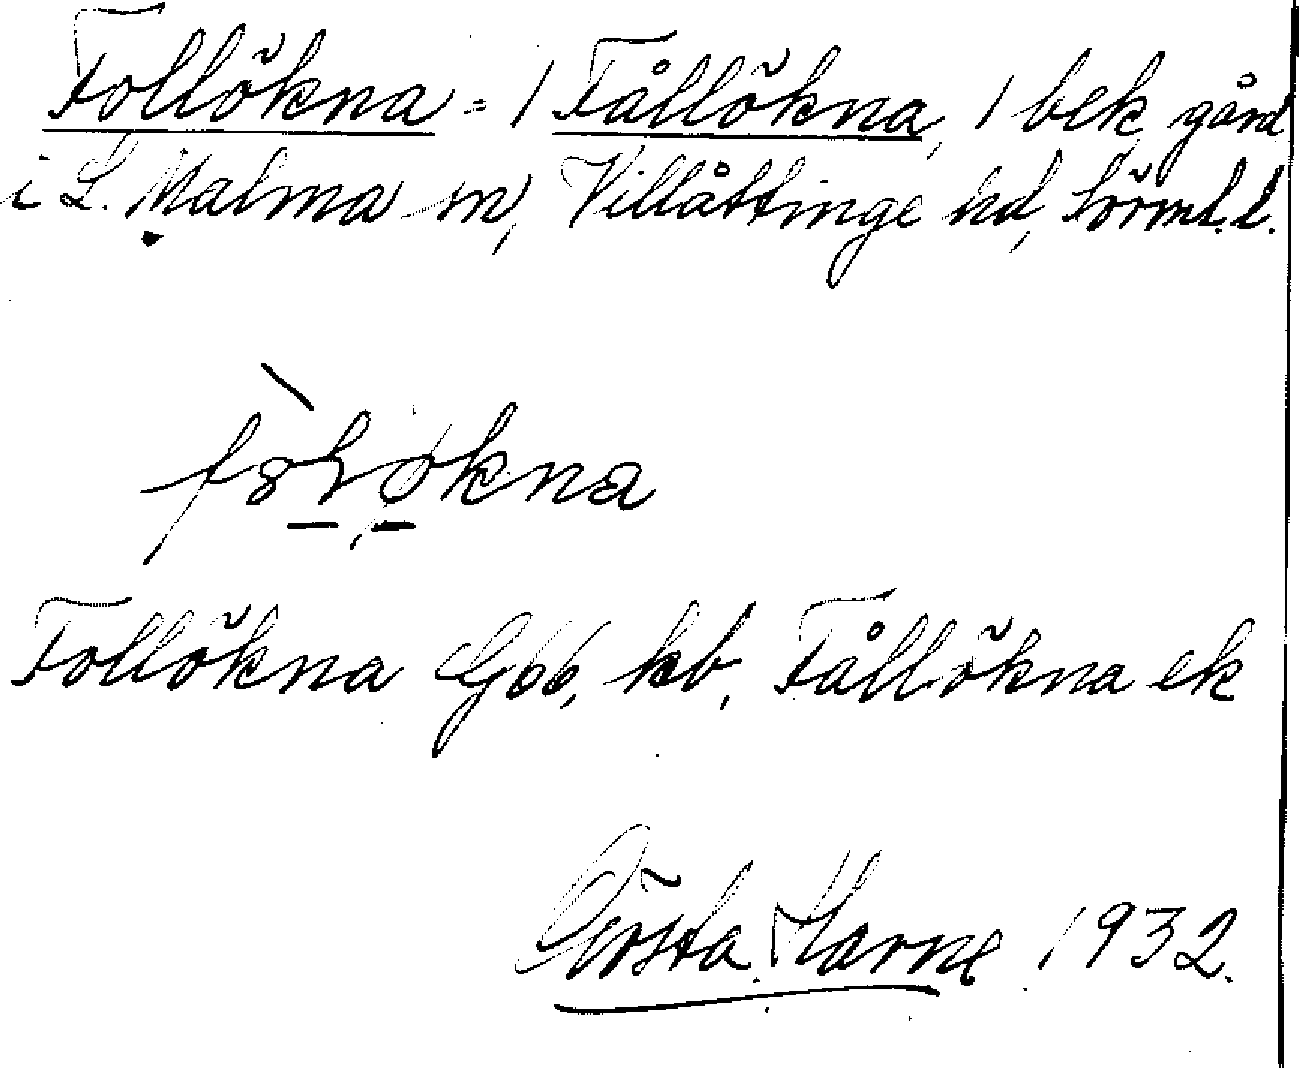 Follökna = / Fållökna, / bek, gård
i L. Malma sn, Villåttinge hd, Sörml. l.
Follökna G66, kb, Fållökna ek
Gösta Harne 1932.